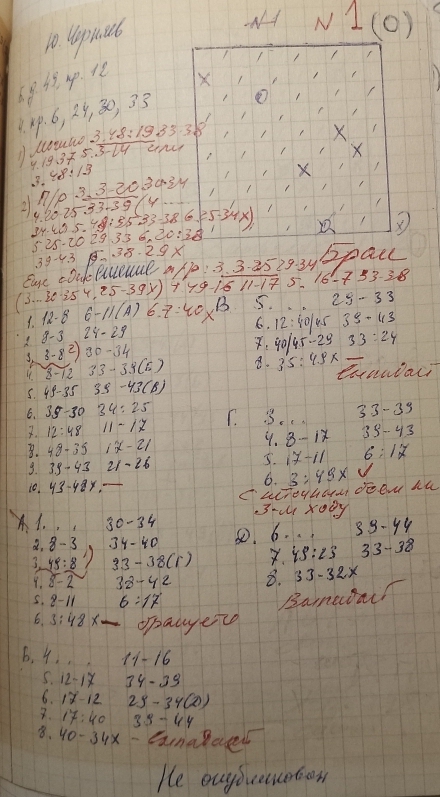 N1 N1 (0)
Ю. Черняев
Б. д. 49, пр. 12
Ч. пр. 6, 24, 30, 33
1) 3. 48:19 33-38
4. 19-37 5. 3-14 или
3. 48:13
2) п/р 3. 3-20 30-34
4. 20-25 33-39 (4 ......
34-40 5. 49:35 33-38 6. 25-34x),
5. 25-20 29-33 6. 20:38
39-43 29x
Еще одно решение п/р: 3. 3-25 29-34 Брак
(3...30-35 4. 25-39x) 4. 49-16 11-17 5. 16-7 33-38
6. 7:40x
1. 12-8 6-11(А)
2. 8-3 24-29
3. 3-8 2) 30-34
4. 8-12 33-39(Б)
5. 49-35 39-43(В)
6. 35-30 34:25
7. 12:48 11-17
8. 48-39 17-21
9. 39-43 21-26
10. 43-48x. —
В. 5. . . . 29-33
6. 12:40/45 39-43
7. 40/45-29 33:24
8. 35:49x —
Выпадает
Г. 3... 33-39
4. 8-17 39-43
5. 17-11 6:17
6. 3:49x
с неточным боем на
3-м ходу
А. 1. . . 30-34
2. 8-3 34-40
3. 49:8 1) 33-38(Г)
4. 8-2 38-42
5. 8-11 6:17
6. 3:48x —
Д. 6... 39-44
7. 49:23 33-38
8. 33-32x
Выпадает
Б. 4. . . . 11-16
5. 12-17 34-39
6. 17-12 29-34(Д)
7. 17:40 39-44
8. 40-34x — Выпадает
Не опубликован